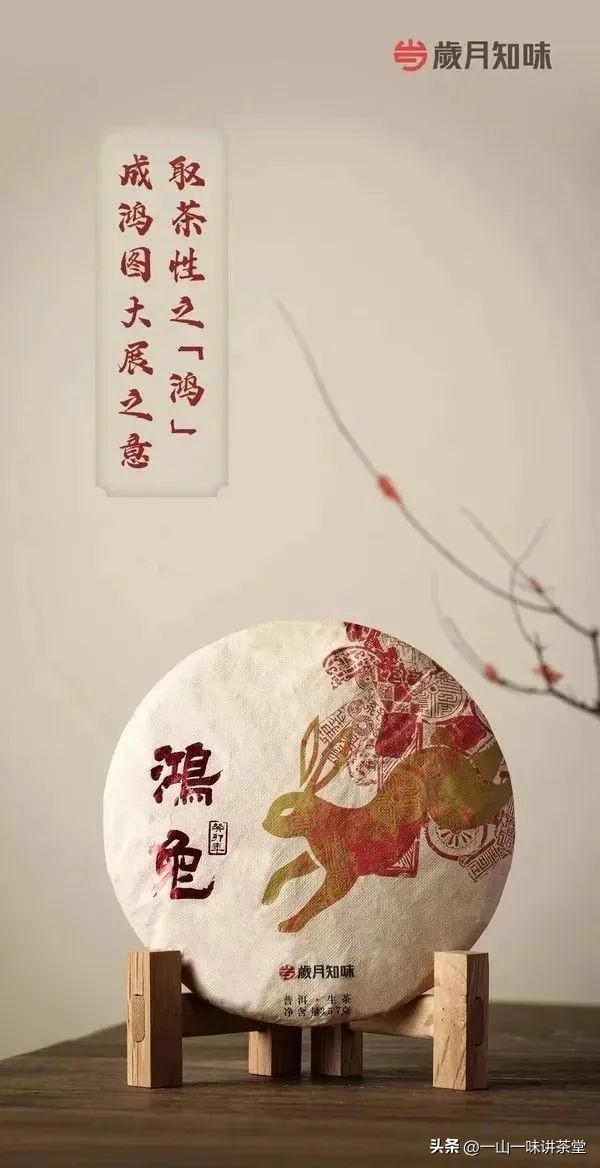 歲月知味
取茶性之「鸿」
成鸿图大展之意
鴻兔
癸卯年
歲月知味
普洱·生茶
净含量357克
头条@一山一味讲茶堂